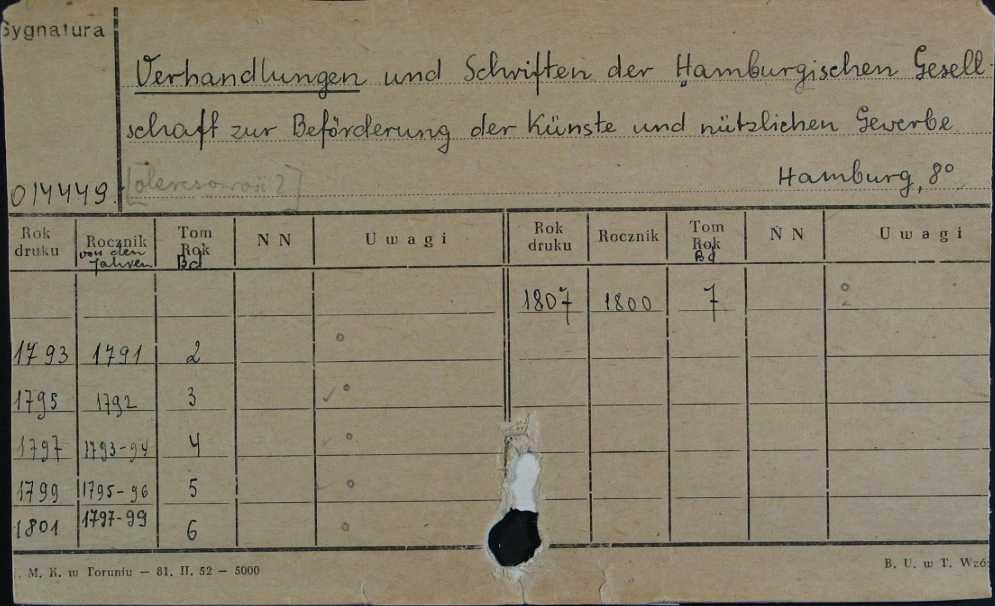 Sygnatura
Verhandlungen und Schriften der Hamburgischen Gesell-
schaft zur Beförderung der Künste und nützlichen Gewerbe
Hamburg, 8°
014449
Rok druku Rocznik von den Jahren Tom Rok Bd N N Uwagi Rok druku Rocznik Tom Rok Bd N N Uwagi
1807 1800 7
1793 1791 2
1795 1792 3
1797 1793-94 4
1799 1795-96 5
1801 1797-99 6
M. K. w Toruniu — 81. II. 52 — 5000
B. U. w T. Wzó